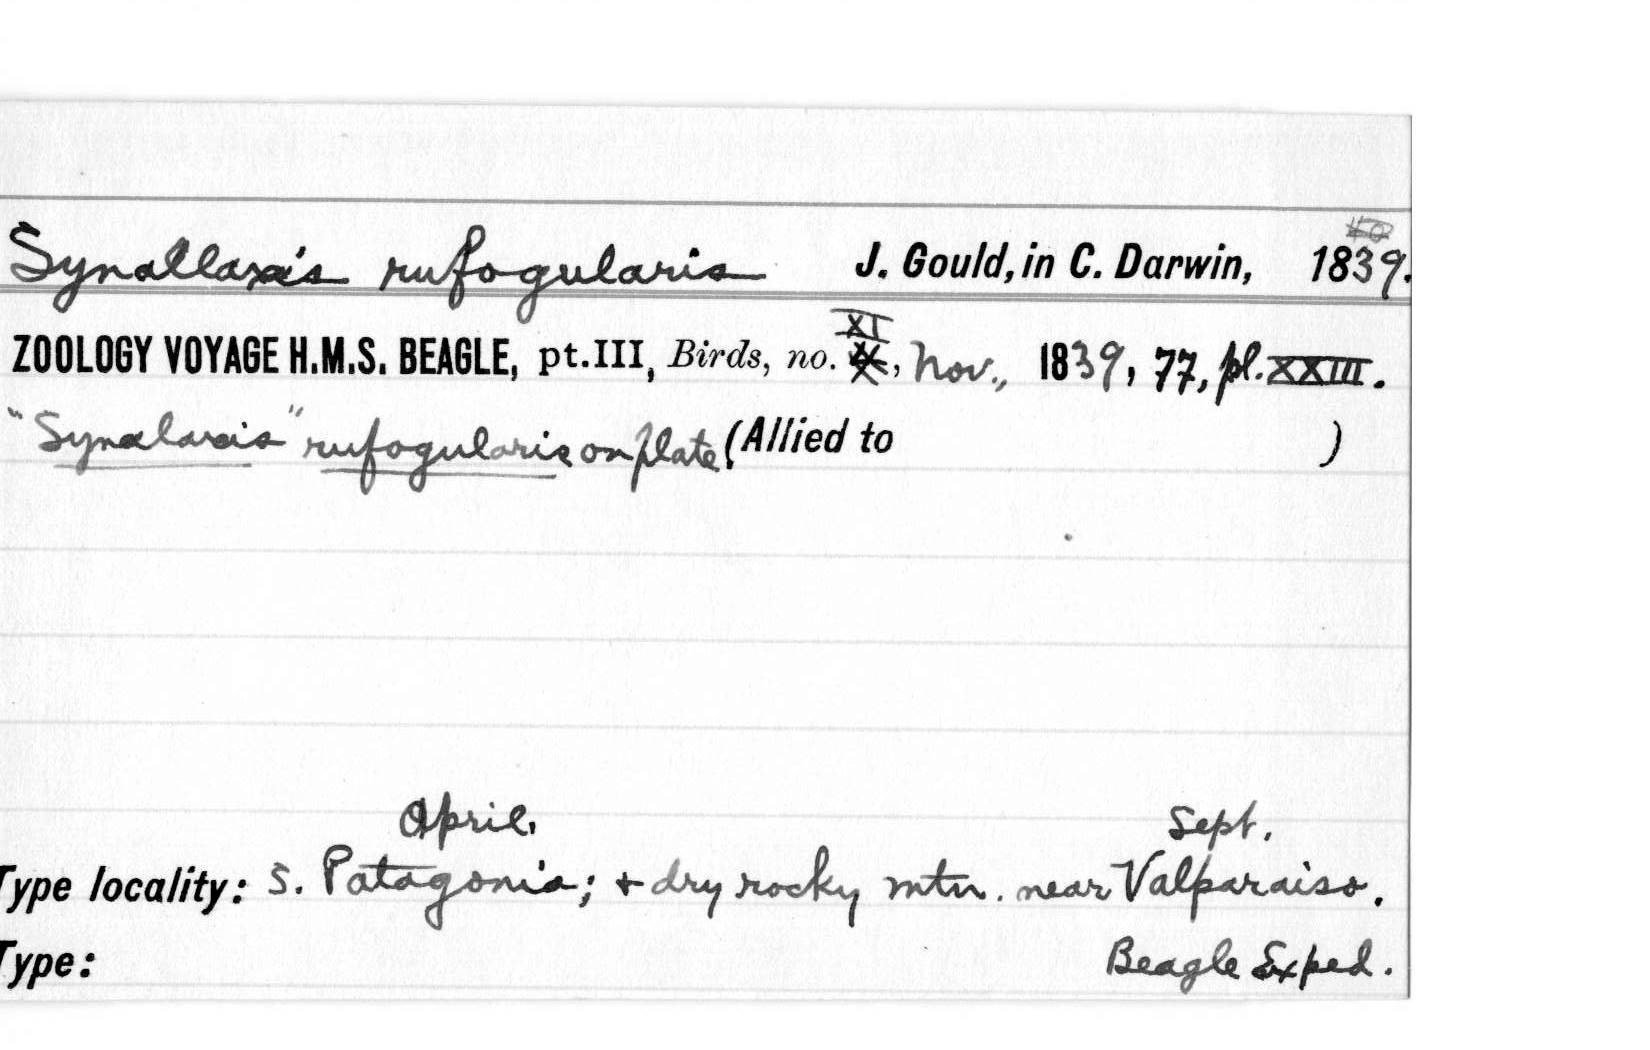 Synallaxis rufogularis J. Gould, in C. Darwin, 1839.
ZOOLOGY VOYAGE H.M.S. BEAGLE, pt.III, Birds, no. XI, Nov., 1839, 77, pl. XXIII.
"Synalaxis" rufogularis on plate. (Allied to )
April. Sept.
Type locality: S. Patagonia; + dry rocky mtn. near Valparaiso.
Type: Beagle Exped.